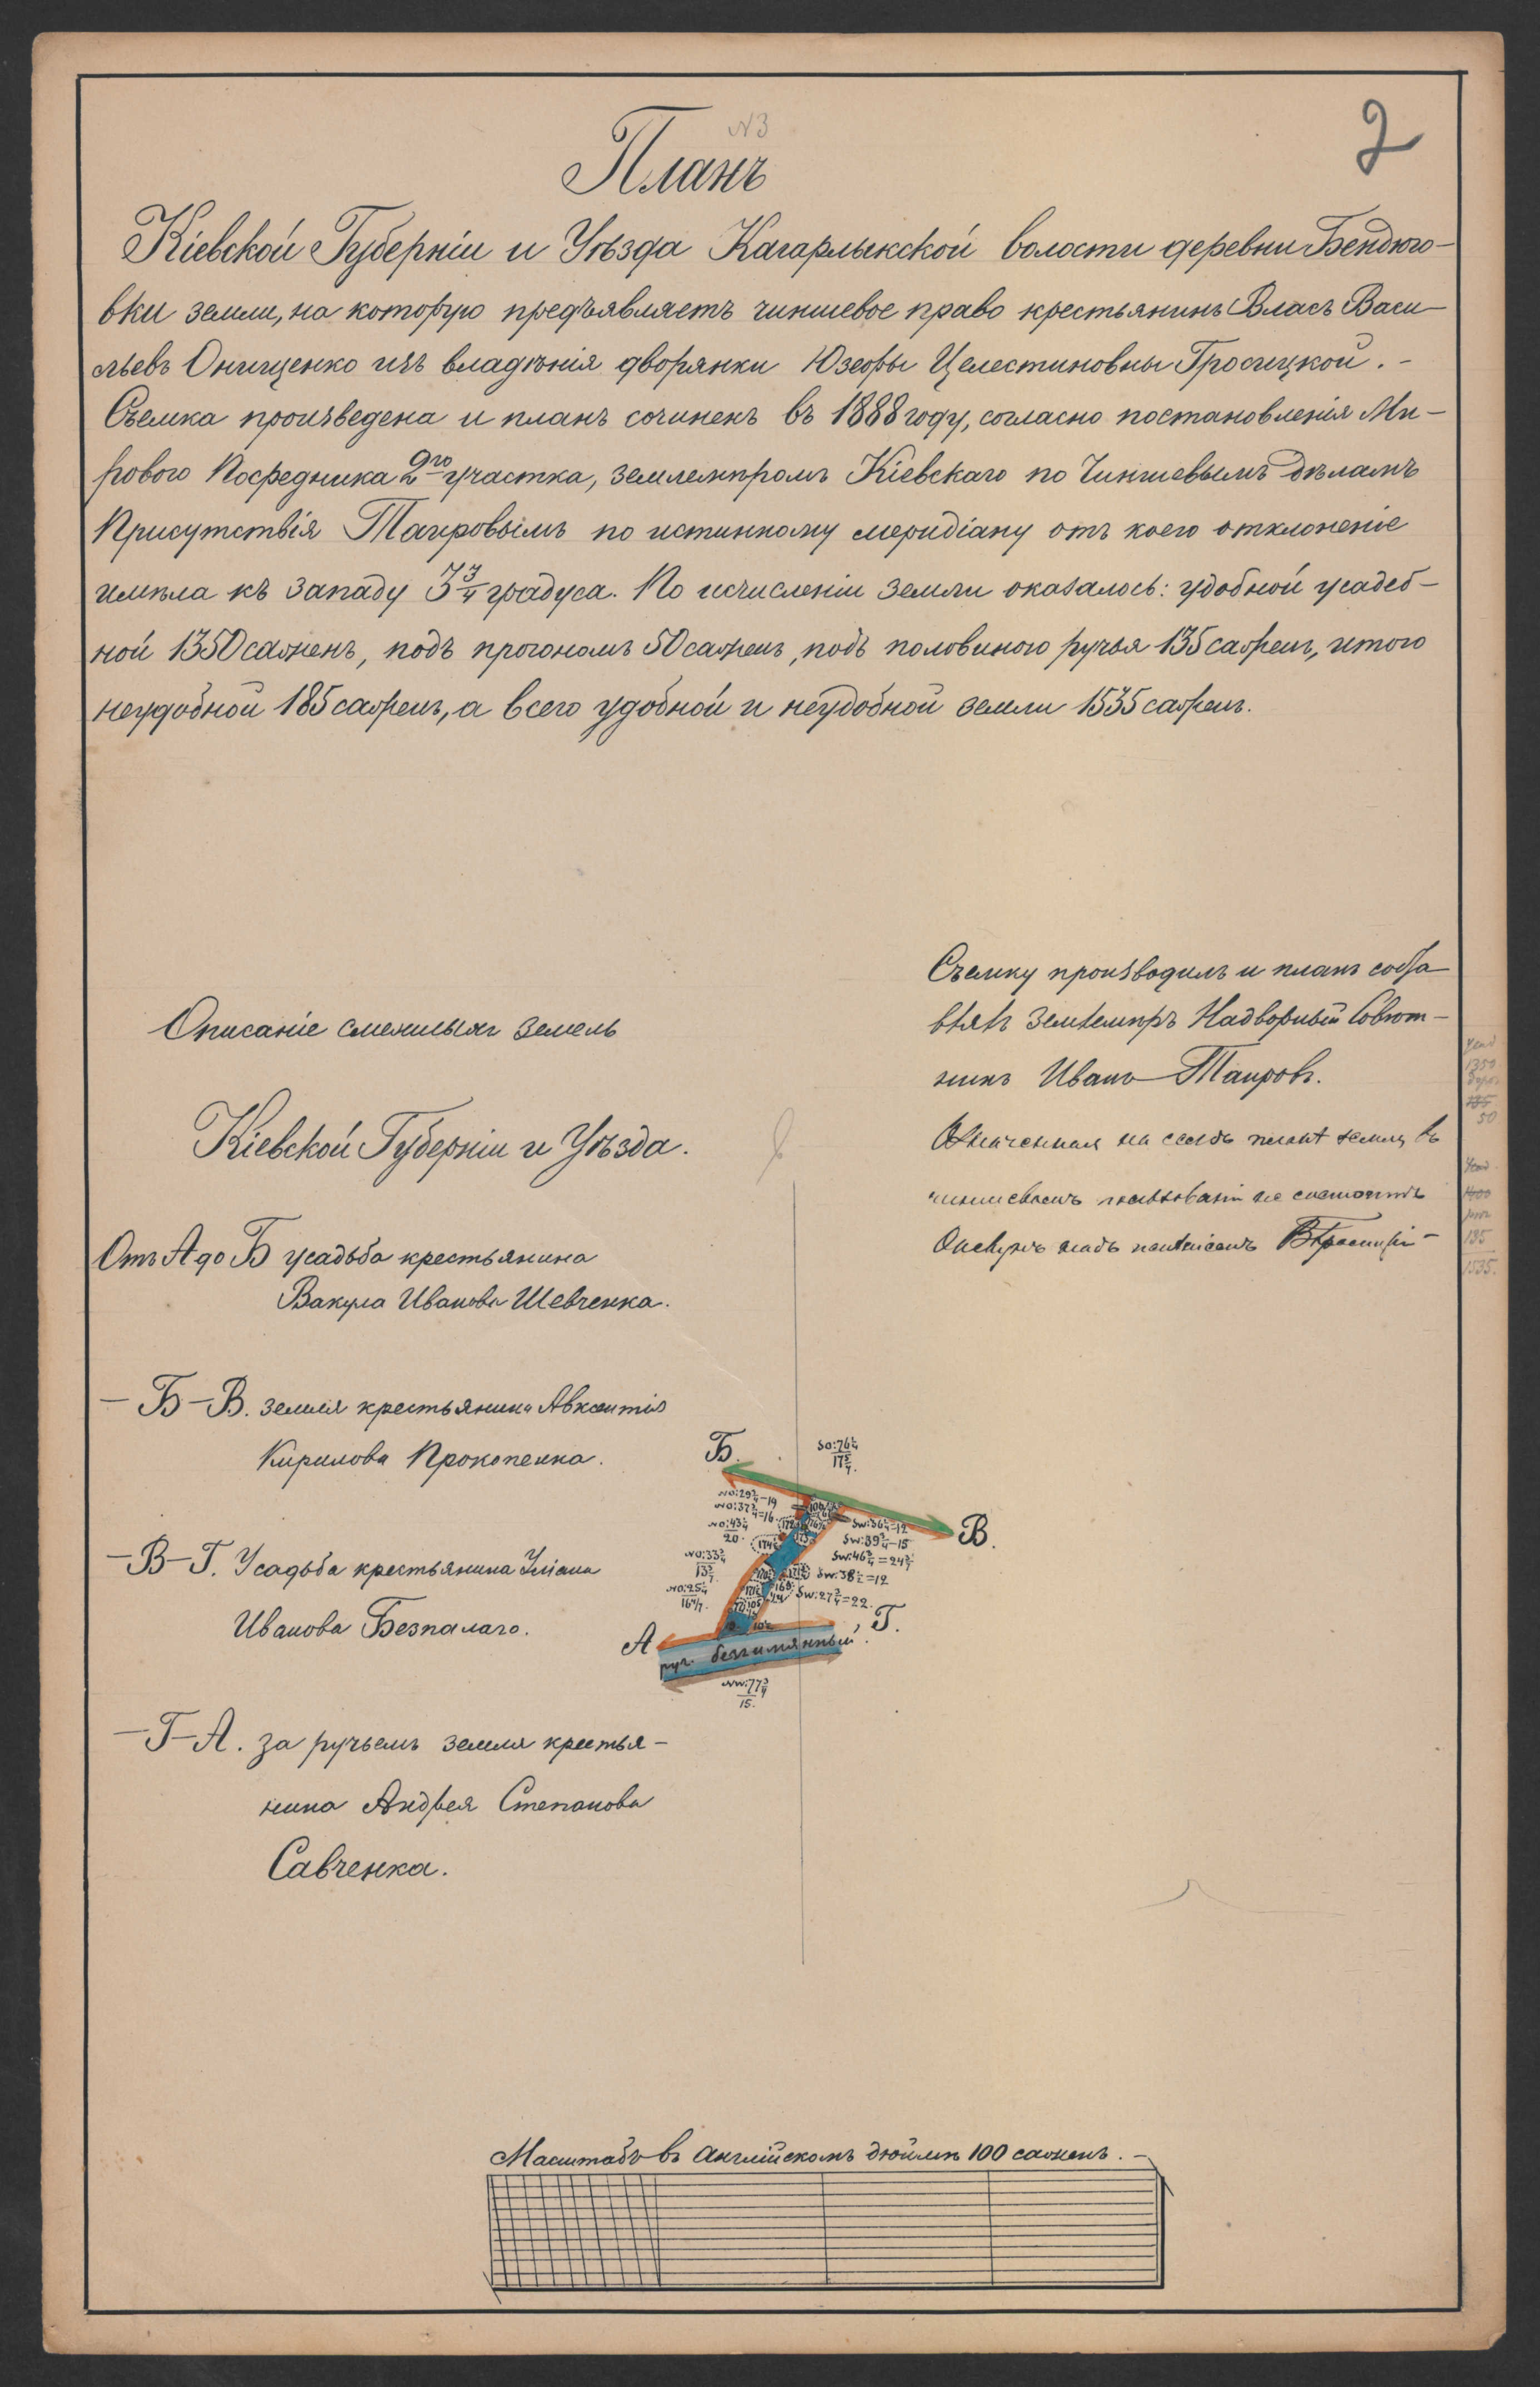 №3
2
Планъ
Кіевской Губерніи и Уѣзда Кагарлыкской волости деревни Бендюго-
вки земли, на которую предъявляетъ чиншевое право крестьянинъ Власъ Васи-
льевъ Онищенко изъ владѣнія дворянки Юзефы Целестиновны Гросицкой.-
Съемка произведена и планъ сочиненъ въ 1888 году, согласно постановленія Ми-
рового Посредника 2го участка, землемѣромъ Кіевскаго по Чиншевымъ дѣламъ
Присутствія Таировымъ по истинному меридіану отъ коего отклоненіе
имѣла къ западу 3 3/4 градуса. По исчисленіи земли оказалось: удобной усадеб-
ной 1350 саженъ, подъ прогономъ 50 сажень, подъ половиною ручья 135 сажень, итого
неудобной 185 сажень, а всего удобной и неудобной земли 1535 сажень.
Съемку производилъ и планъ соста
влялъ Землемѣръ Надворный Совѣт-
никъ Иванъ Таировъ.
Означенная на семъ планѣ земля въ
чиншевомъ пользованіи не состоитъ
Описаніе смежныхъ земель
Кіевской Губерніи и Уѣзда.
Отъ А до Б усадьба крестьянина
Вакула Иванова Шевченка.
- Б - В. земля крестьянина Авксентія
Кирилова Прокопенка.
- В - Г. Усадьба крестьянина Уліана
Иванова Безпалаго.
- Г - А. за ручьемъ земля крестья-
нина Андрея Степанова
Савченка.
Б.
В.
А
Г.
руч. безъимянный
NW:77 3/4
15.
Масштабъ въ Англійскомъ дюймѣ 100 саженъ.-
1350
50
135
1535.